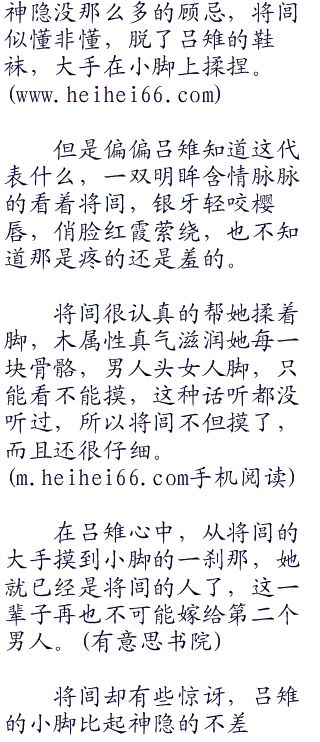 神隐没那么多的顾忌，将闾
似懂非懂，脱了吕雉的鞋
袜，大手在小脚上揉捏。
(www.heihei66.com)
但是偏偏吕雉知道这代
表什么，一双明眸含情脉脉
的看着将闾，银牙轻咬樱
唇，俏脸红霞萦绕，也不知
道那是疼的还是羞的。
将闾很认真的帮她揉着
脚，木属性真气滋润她每一
块骨骼，男人头女人脚，只
能看不能摸，这种话听都没
听过，所以将闾不但摸了，
而且还很仔细。
(m.heihei66.com手机阅读)
在吕雉心中，从将闾的
大手摸到小脚的一刹那，她
就已经是将闾的人了，这一
辈子再也不可能嫁给第二个
男人。(有意思书院)
将闾却有些惊讶，吕雉
的小脚比起神隐的不差